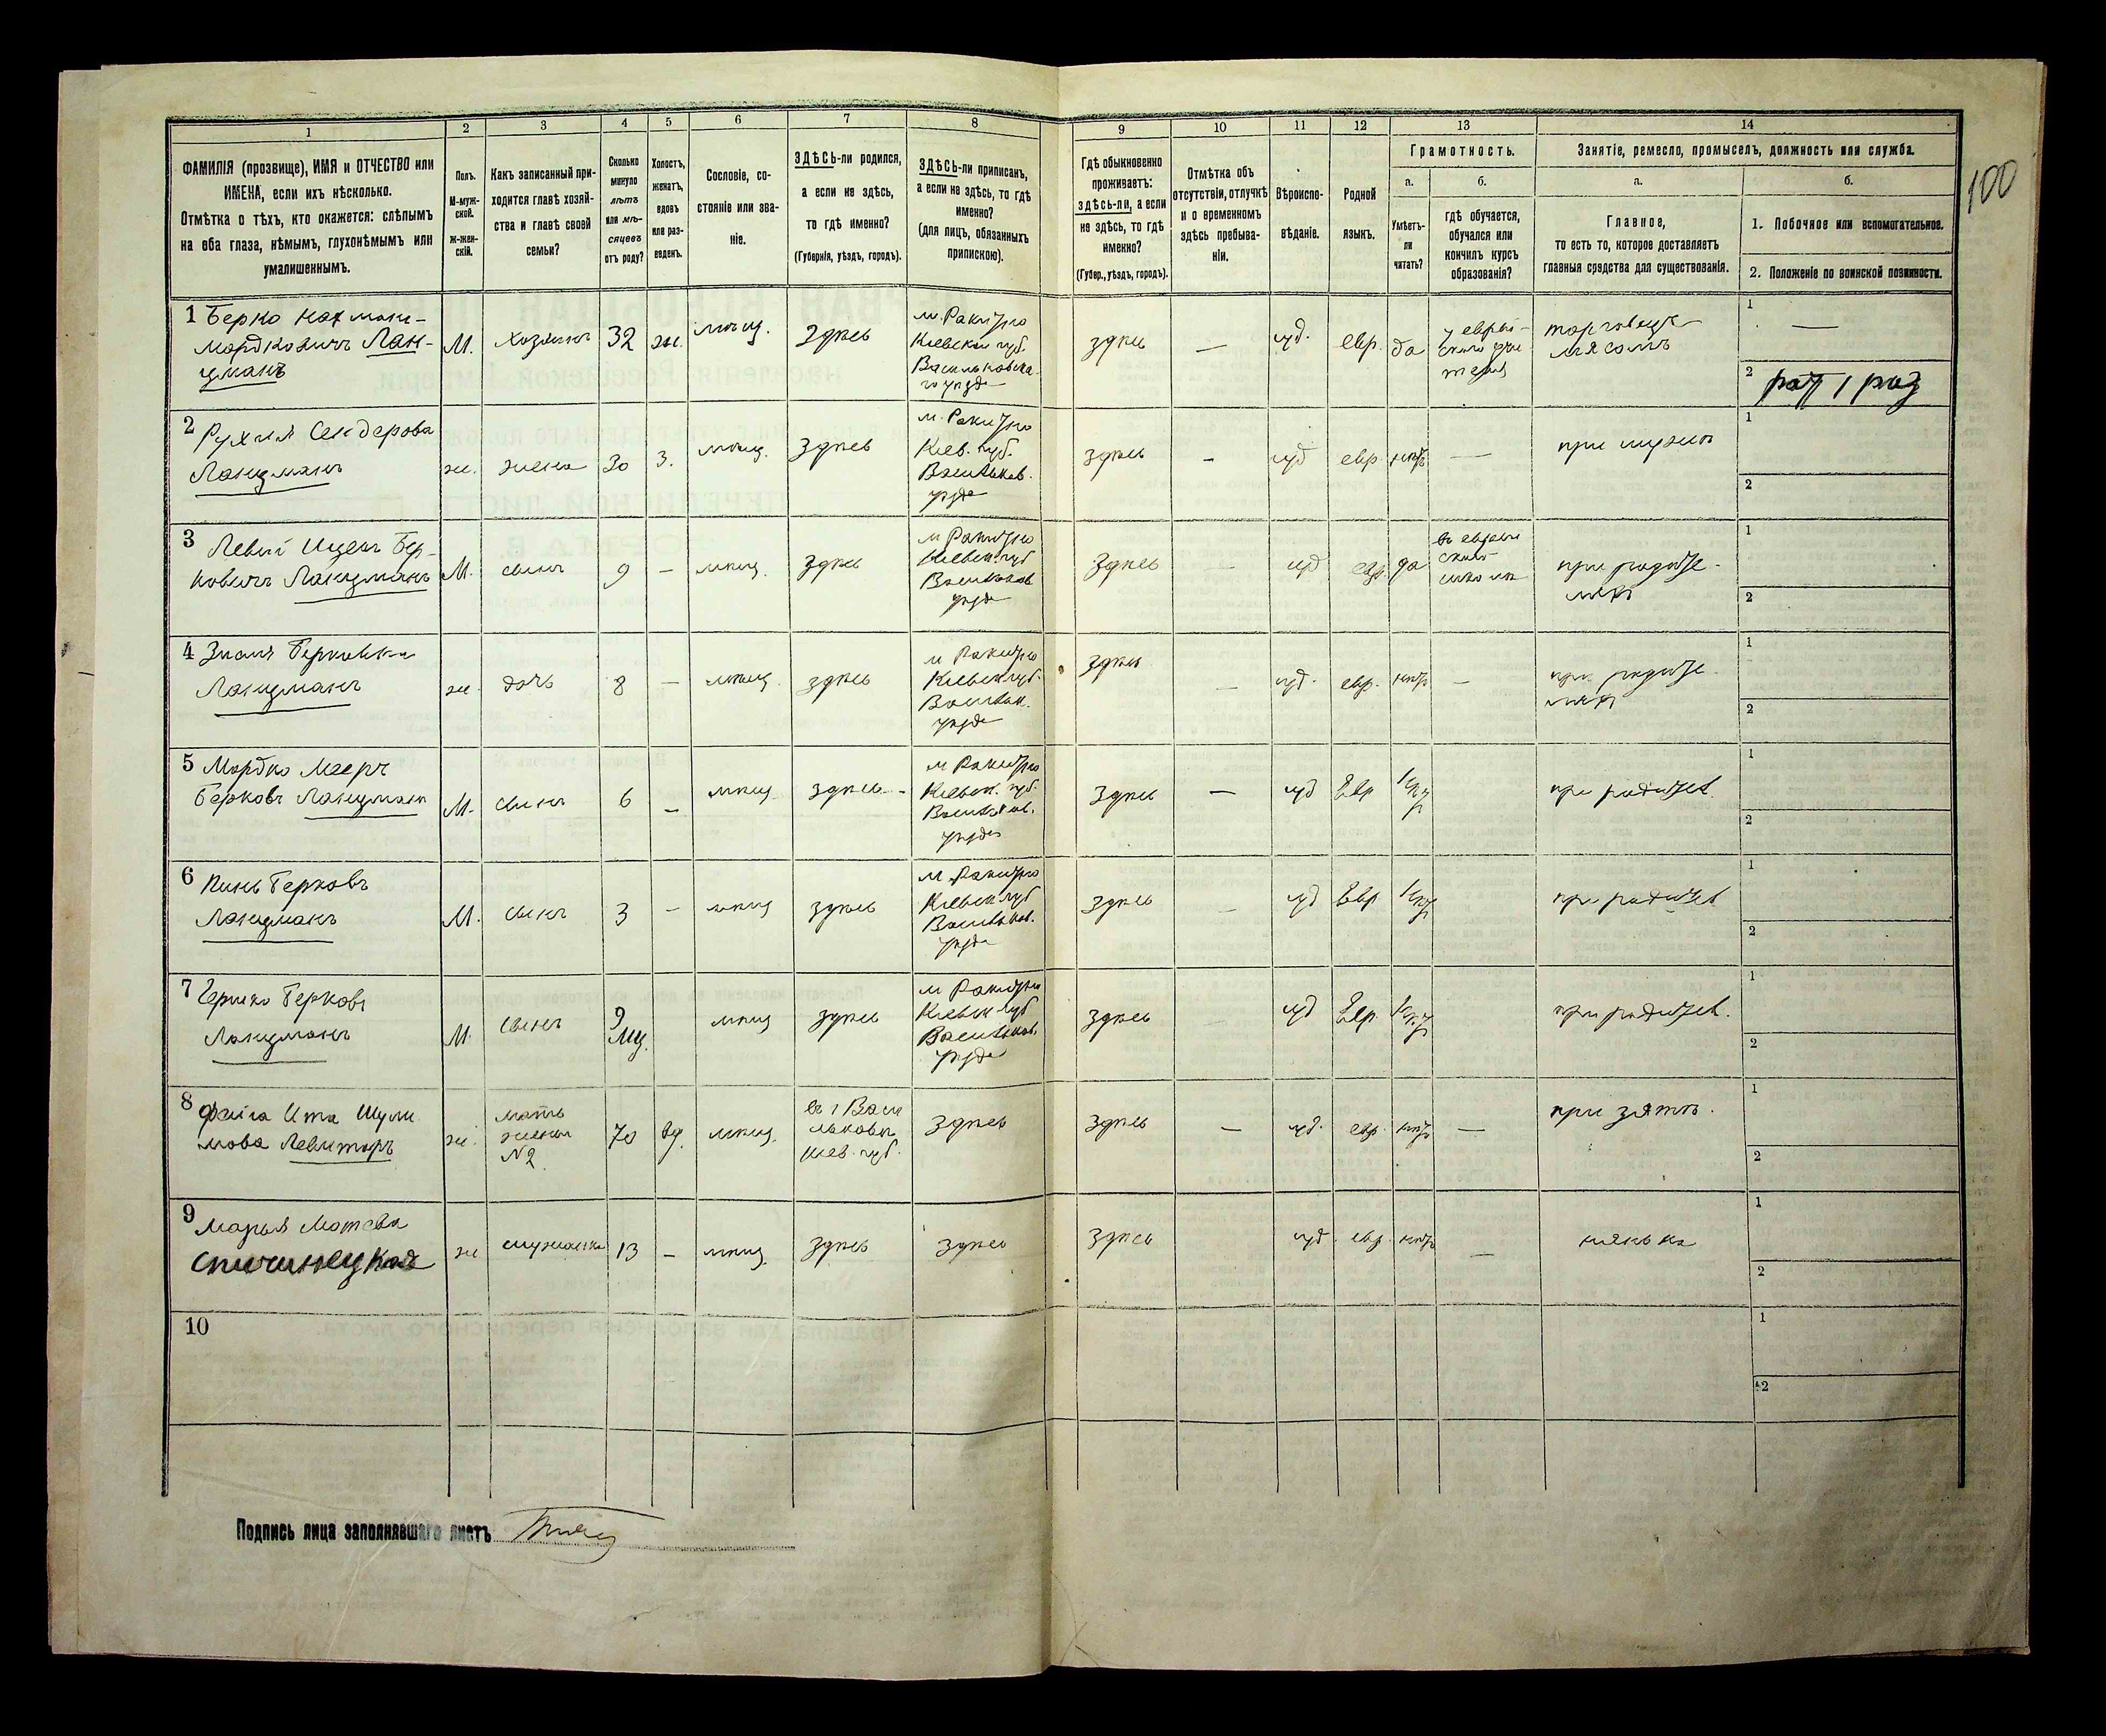 100
1 2 3 4 5 6 7 8 9 10 11 12 13 14
ФАМИЛІЯ (прозвище), ИМЯ и ОТЧЕСТВО или
ИМЕНА, если ихъ нѣсколько.
Отмѣтка о тѣхъ, кто окажется: слѣпымъ
на оба глаза, нѣмымъ, глухонѣмымъ или
умалишеннымъ.
Полъ.
М-муж-
ской.
Ж-жен-
скій.
Какъ записанный при-
ходится главѣ хозяй-
ства и главѣ своей
семьи?
Сколько
минуло
лѣтъ
или мѣ-
сяцевъ
отъ роду?
Холостъ,
женатъ,
вдовъ
или раз-
веденъ.
Сословіе, со-
стояніе или зва-
ніе.
ЗДѢСЬ-ли родился,
а если не здѣсь,
то гдѣ именно?
(Губернія, уѣздъ, городъ).
ЗДѢСЬ-ли приписанъ,
а если не здѣсь, то гдѣ
именно?
(для лицъ, обязанныхъ
припискою).
Гдѣ обыкновенно
проживаетъ:
здѣсь-ли, а если
не здѣсь, то гдѣ
именно?
(Губер., уѣздъ, городъ).
Отмѣтка объ
отсутствіи, отлучкѣ
и о временномъ
здѣсь пребыва-
ніи.
Вѣроиспо-
вѣданіе.
Родной
языкъ.
Грамотность.
а.
Умѣетъ-
ли
читать?
б.
гдѣ обучается,
обучался или
кончилъ курсъ
образованія?
Занятіе, ремесло, промыселъ, должность или служба.
а.
Главное,
то есть то, которое доставляетъ
главныя средства для существованія.
б.
1. Побочное или вспомогательное.
2. Положеніе по воинской повинности.
1 Берко Нахманъ-
Мордковичъ Лан-
цманъ
М.
хозяинъ
32
ж.
мѣщ.
здѣсь
м. Ракитно
Кіевской губ.
Васильковска-
го уѣзда
здѣсь
—
іуд.
евр.
да
у еврей-
скаго учи-
теля
торговецъ
мясомъ
1 —
2
2 Рухля Сендерова
Ланцманъ
ж.
жена
30
з.
мѣщ.
здѣсь
м. Ракитно
Кіев. губ.
Васильков.
уѣзда
здѣсь
-
іуд
евр
нѣтъ
—
при мужѣ
1
2
3 Левий Ицекъ Бер-
ковичъ Ланцманъ
М.
сынъ
9
-
мѣщ.
здѣсь
м Ракитно
Кіевск. губ
Васильков
уѣзда
здѣсь
—
іуд
евр.
да
въ еврей
ской
школѣ
при родите-
ляхъ
1
2
4 Берковна
Ланцманъ
ж.
дочь
8
-
мѣщ.
здѣсь
м Ракитно
Кіевск губ.
Васильк.
уѣзда
здѣсь
—
іуд.
евр.
нѣтъ
—
при родите-
ляхъ
1
2
5 Мордко Мееръ
Берковъ Ланцманъ
М.
сынъ
6
-
мѣщ
здѣсь
м Ракитно
Кіевск. губ.
Васильков.
уѣзда
здѣсь
—
іуд
Евр
нѣт
при родител.
1
2
6 Пинь Берковъ
Ланцманъ
М.
сынъ
3
-
мѣщ
здѣсь
м Ракитно
Кіевск губ
Васильков.
уѣзда
здѣсь
—
іуд
Евр
нѣт
при родител
1
2
7 Гершко Берковъ
Ланцманъ
М.
сынъ
9
мц.
мѣщ
здѣсь
м Ракитно
Кіевск губ
Васильков.
уѣзда
здѣсь
іуд
Евр
нѣт
при родител.
1
2
8 Файга Ита Шули
мова Левиторъ
ж.
мать
жены
№2.
70
вд.
мѣщ.
въ г Васи
льковѣ
Кіев. губ.
здѣсь
здѣсь
—
іуд.
евр.
нѣтъ
—
при зятѣ.
1
2
9 Марья Мотева
Спичинецкая
ж
служанка
13
-
мѣщ.
здѣсь
здѣсь
здѣсь
іуд.
евр.
нѣтъ
—
нянька
1
2
10
1
2
Подпись лица заполнявшаго листъ